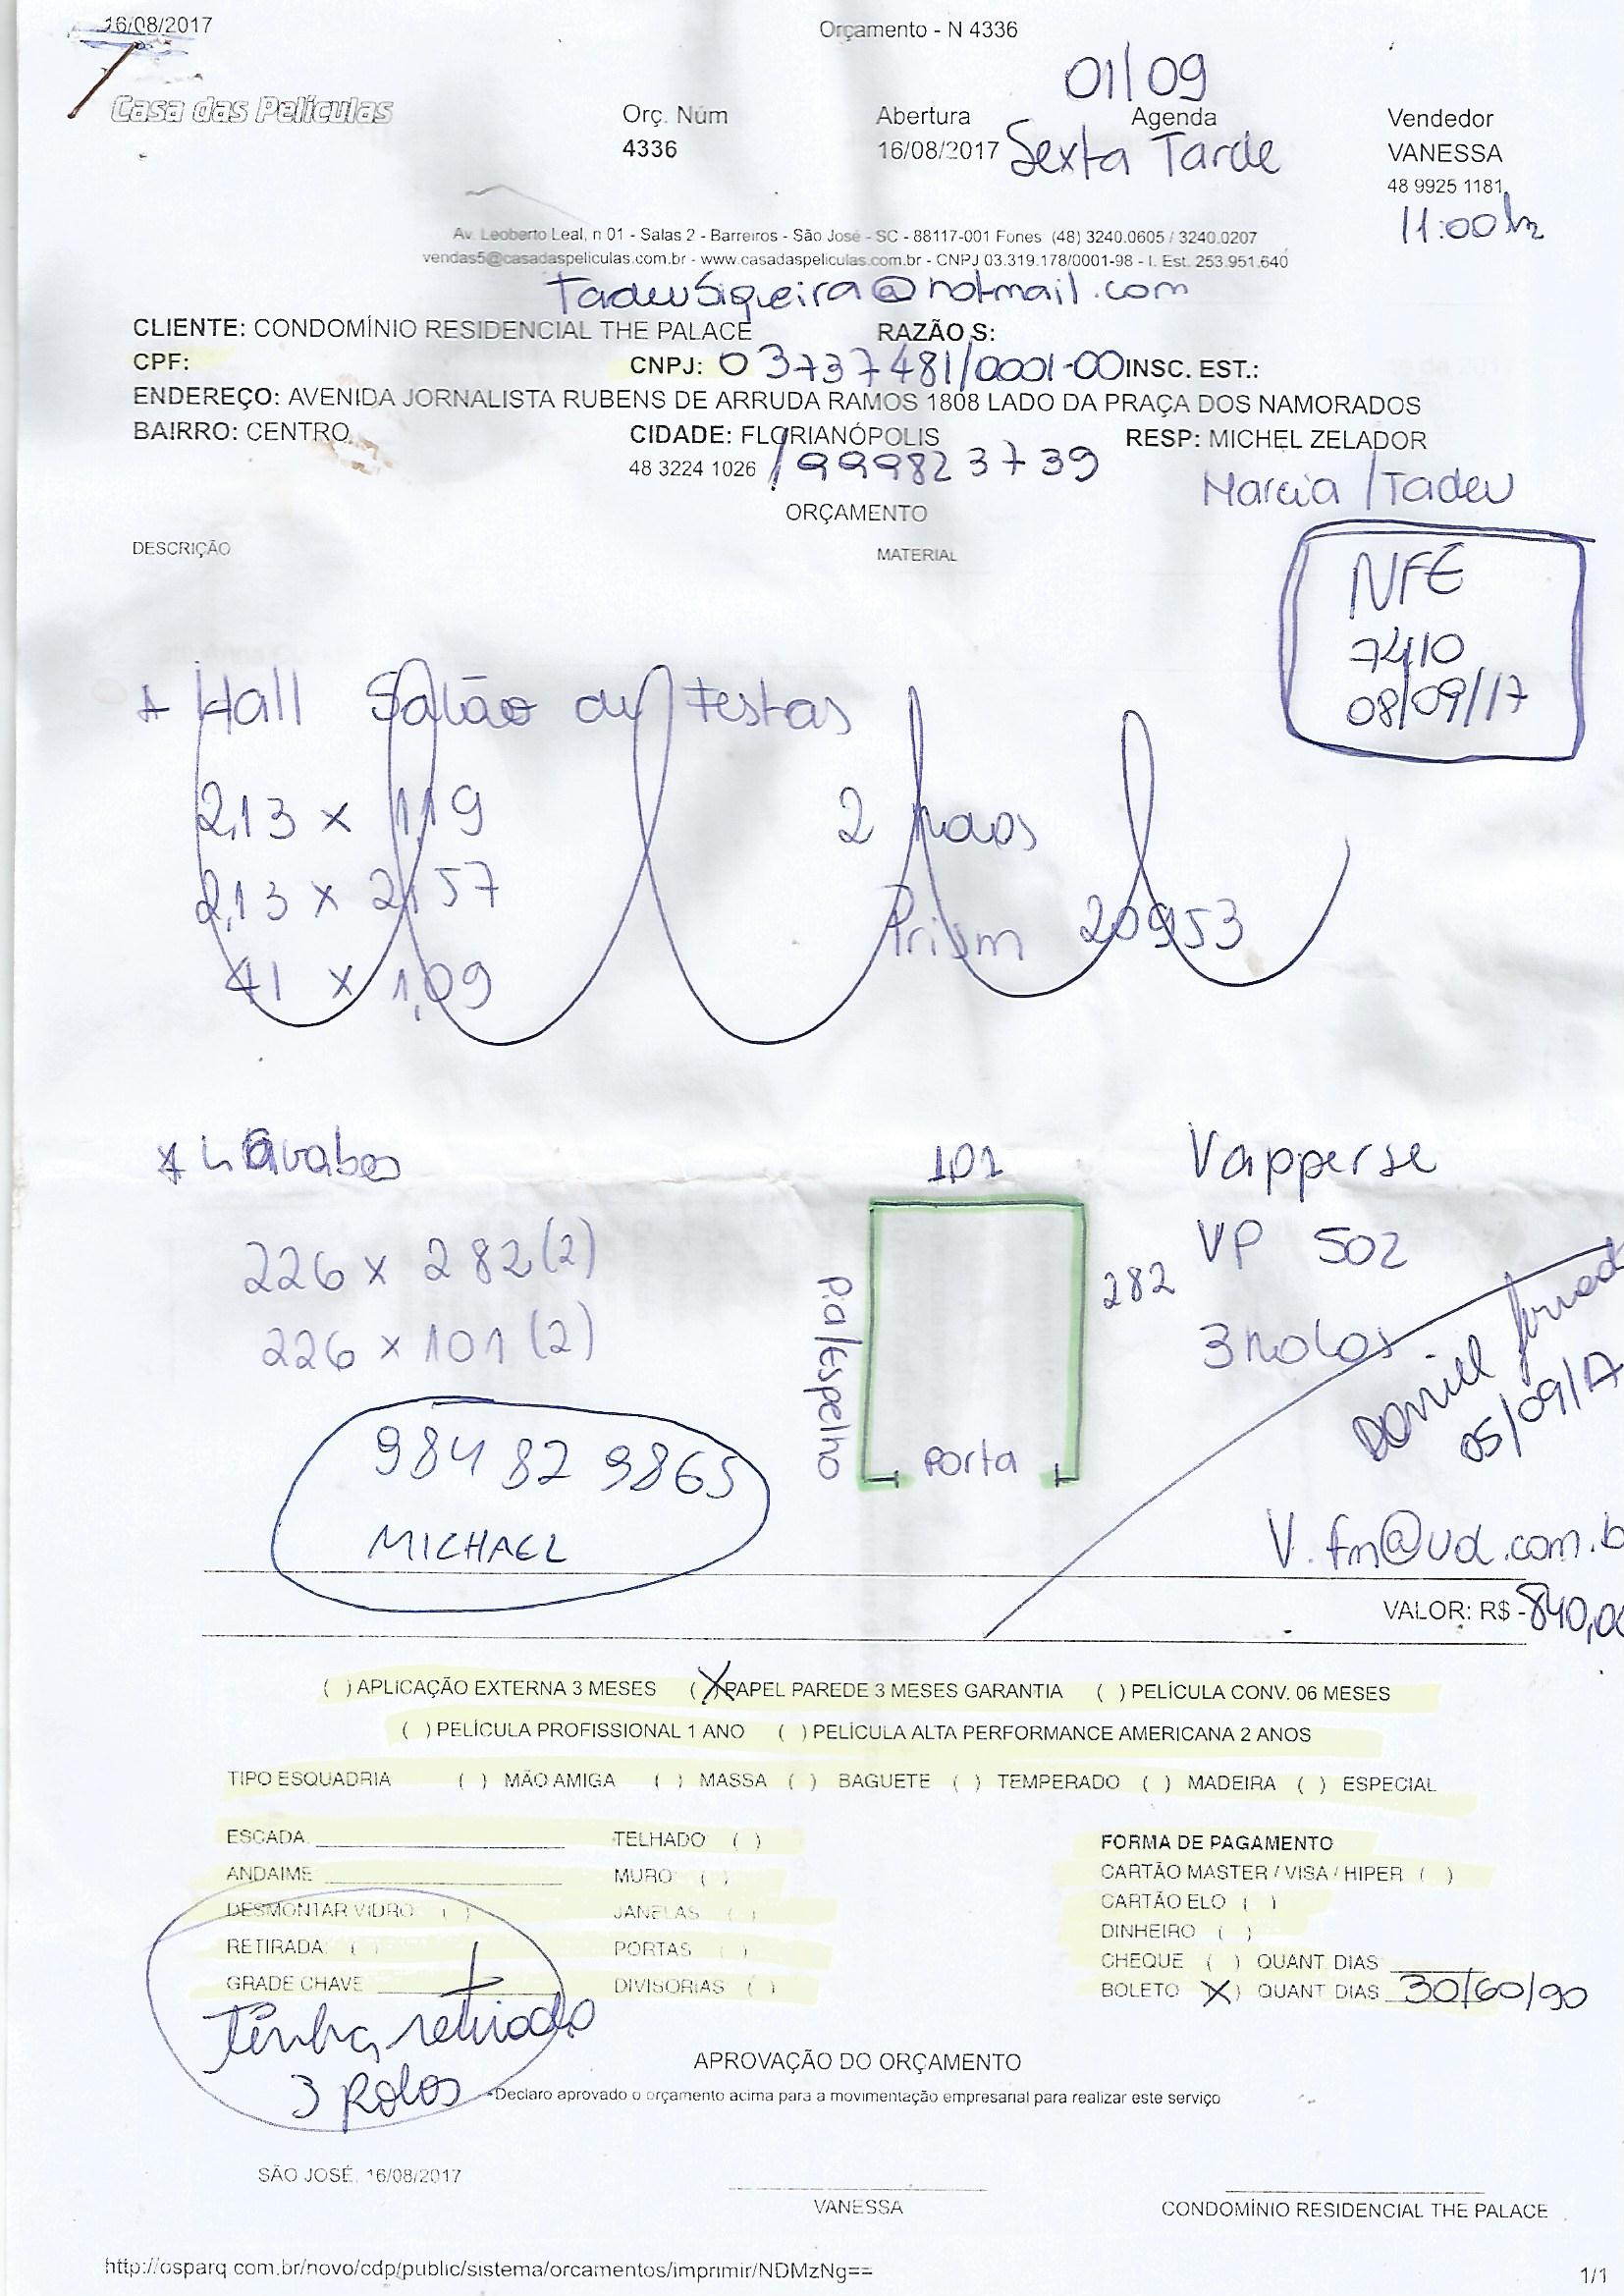 16/08/2017 Orçamento - N 4336
01/09
Casa das Películas Orç. Núm Abertura Agenda Vendedor
4336 16/08/2017 Sexta Tarde VANESSA
48 9925 1181
11:00hs
Av. Leoberto Leal, n 01 - Salas 2 - Barreiros - São José - SC - 88117-001 Fones (48) 3240.0605 / 3240.0207
vendas5@casadaspeliculas.com.br - www.casadaspeliculas.com.br - CNPJ 03.319.178/0001-98 - I. Est. 253.951.640
tadeusiqueira@hotmail.com
CLIENTE: CONDOMÍNIO RESIDENCIAL THE PALACE RAZÃO S:
CPF: CNPJ: 03737481/0001-00 INSC. EST.:
ENDEREÇO: AVENIDA JORNALISTA RUBENS DE ARRUDA RAMOS 1808 LADO DA PRAÇA DOS NAMORADOS
BAIRRO: CENTRO CIDADE: FLORIANÓPOLIS RESP: MICHEL ZELADOR
48 3224 1026 / 999823739
Marcia / Tadeu
ORÇAMENTO
DESCRIÇÃO MATERIAL
NFE
7410
08/09/17
* Hall Salão de festas
2,13 x 1,19 2
2,13 x 2,57
Prism 20953
41 x 1,09
* Lavabos 101 Vapperse
226 x 282 (2) VP 502
282
226 x 101 (2) 3 Rolos
Pia/Espelho
Daniel
05/09/17
984 82 9865 Porta
MICHAEL
V.fm@uol.com.b
VALOR: R$ - 840,00
( ) APLICAÇÃO EXTERNA 3 MESES (X) PAPEL PAREDE 3 MESES GARANTIA ( ) PELÍCULA CONV. 06 MESES
( ) PELÍCULA PROFISSIONAL 1 ANO ( ) PELÍCULA ALTA PERFORMANCE AMERICANA 2 ANOS
TIPO ESQUADRIA ( ) MÃO AMIGA ( ) MASSA ( ) BAGUETE ( ) TEMPERADO ( ) MADEIRA ( ) ESPECIAL
ESCADA TELHADO ( ) FORMA DE PAGAMENTO
ANDAIME MURO ( ) CARTÃO MASTER / VISA / HIPER ( )
DESMONTAR VIDRO ( ) JANELAS ( ) CARTÃO ELO ( )
RETIRADA ( ) PORTAS ( ) DINHEIRO ( )
GRADE CHAVE DIVISORIAS ( ) CHEQUE ( ) QUANT DIAS
BOLETO (X) QUANT DIAS 30/60/90
Tinha retirado
3 Rolos
APROVAÇÃO DO ORÇAMENTO
*Declaro aprovado o orçamento acima para a movimentação empresarial para realizar este serviço
SÃO JOSÉ, 16/08/2017
VANESSA CONDOMÍNIO RESIDENCIAL THE PALACE
http://osparq.com.br/novo/cdp/public/sistema/orcamentos/imprimir/NDMzNg== 1/1